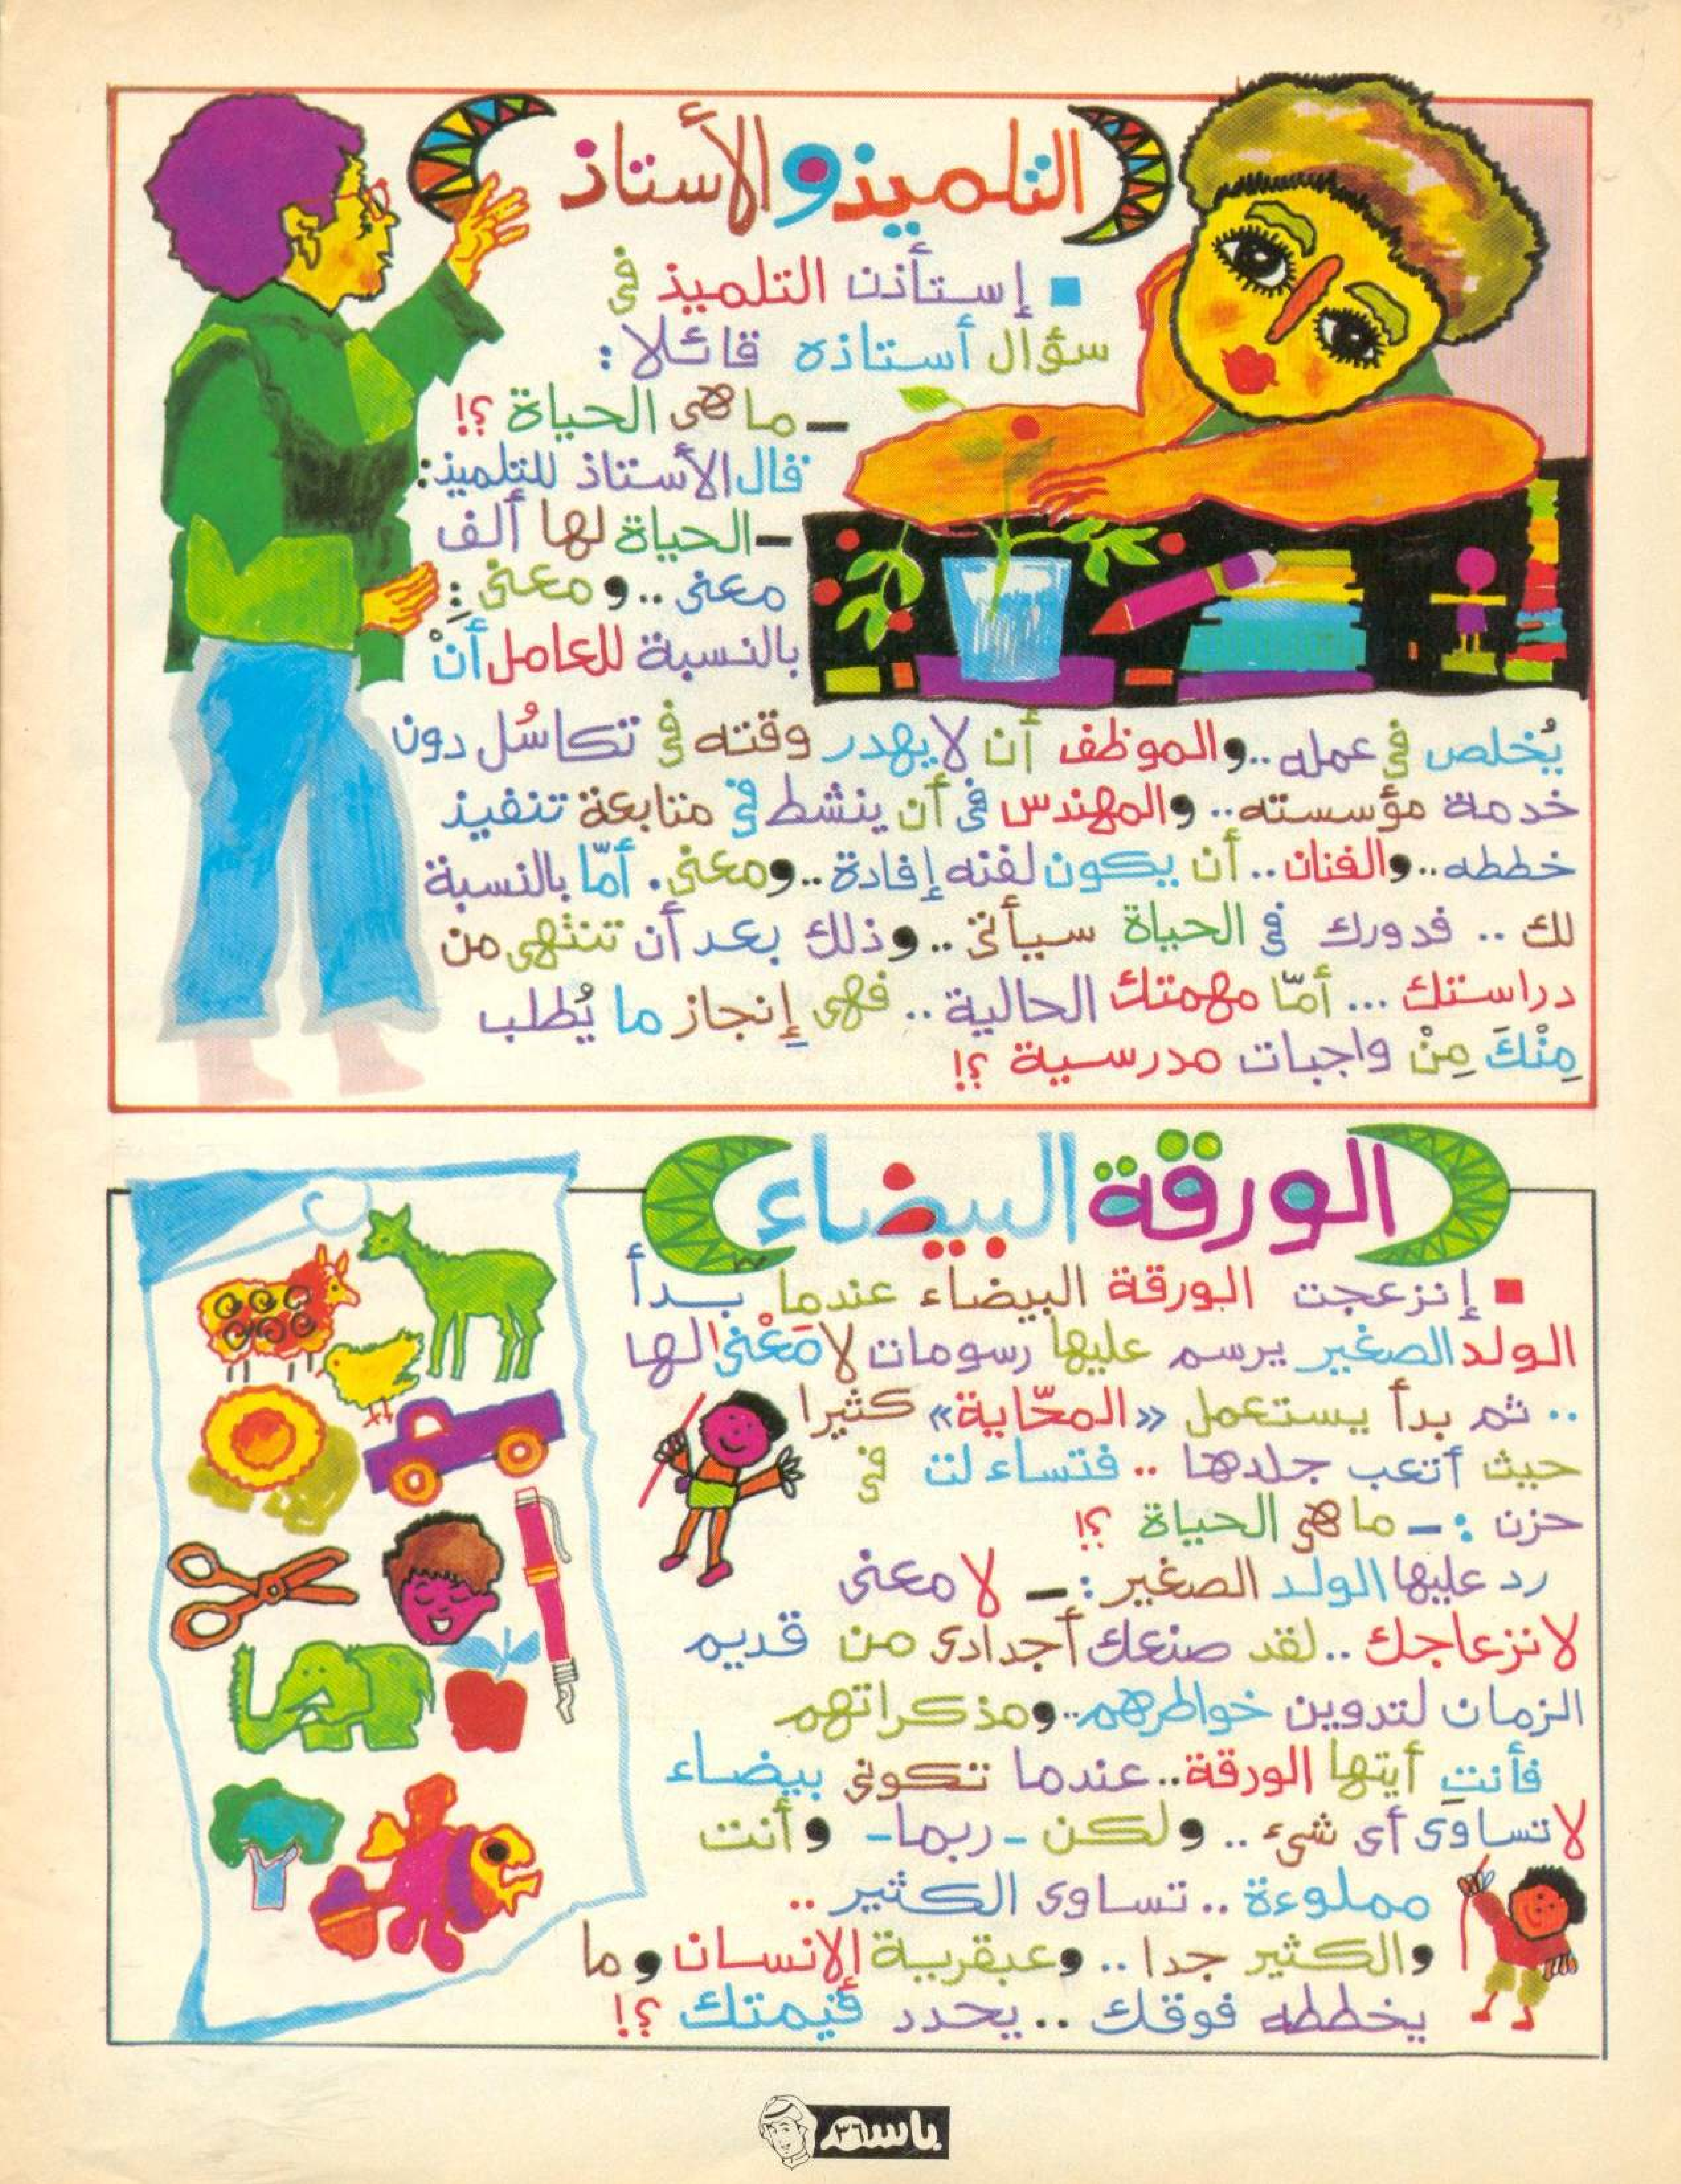 التلميذ والأستاذ
إستأذن التلميذ في
سؤال أستاذه قائلا :
ـ ما هي الحياة ؟!
قال الأستاذ للتلميذ :
ـ الحياة لها ألف
معنى .. ومعنى :
بالنسبة للعامل أنْ
يُخلص في عمله .. والموظف أن لا يهدر وقته في تكاسُل دون
خدمة مؤسسته .. والمهندس في أن ينشط في متابعة تنفيذ
خططه .. والفنان .. أن يكون لفنه إفادة .. ومعنى . أمّا بالنسبة
لك .. فدورك في الحياة سيأتي .. وذلك بعد أن تنتهي من
دراستك ... أمّا مهمتك الحالية .. فهي إنجاز ما يُطلب
مِنْكَ مِنْ واجبات مدرسية ؟!
الورقة البيضاء
إنزعجت الورقة البيضاء عندما بدأ
الولد الصغير يرسم عليها رسومات لا مَعْنى لها
.. ثم بدأ يستعمل «المحّاية» كثيرا
حيث أتعب جلدها .. فتساءلت في
حزن : ـ ما هي الحياة ؟!
رد عليها الولد الصغير : ـ لا معنى
لانزعاجك .. لقد صنعك أجدادي من قديم
الزمان لتدوين خواطرهم .. ومذكراتهم
فأنتِ أيتها الورقة .. عندما تكوني بيضاء
لا تساوي أي شيء .. ولكن - ربما - وأنت
مملوءة .. تساوي الكثير ..
والكثير جدا .. وعبقرية الإنسان وما
يخططه فوقك .. يحدد قيمتك ؟!
باسم ٣٦